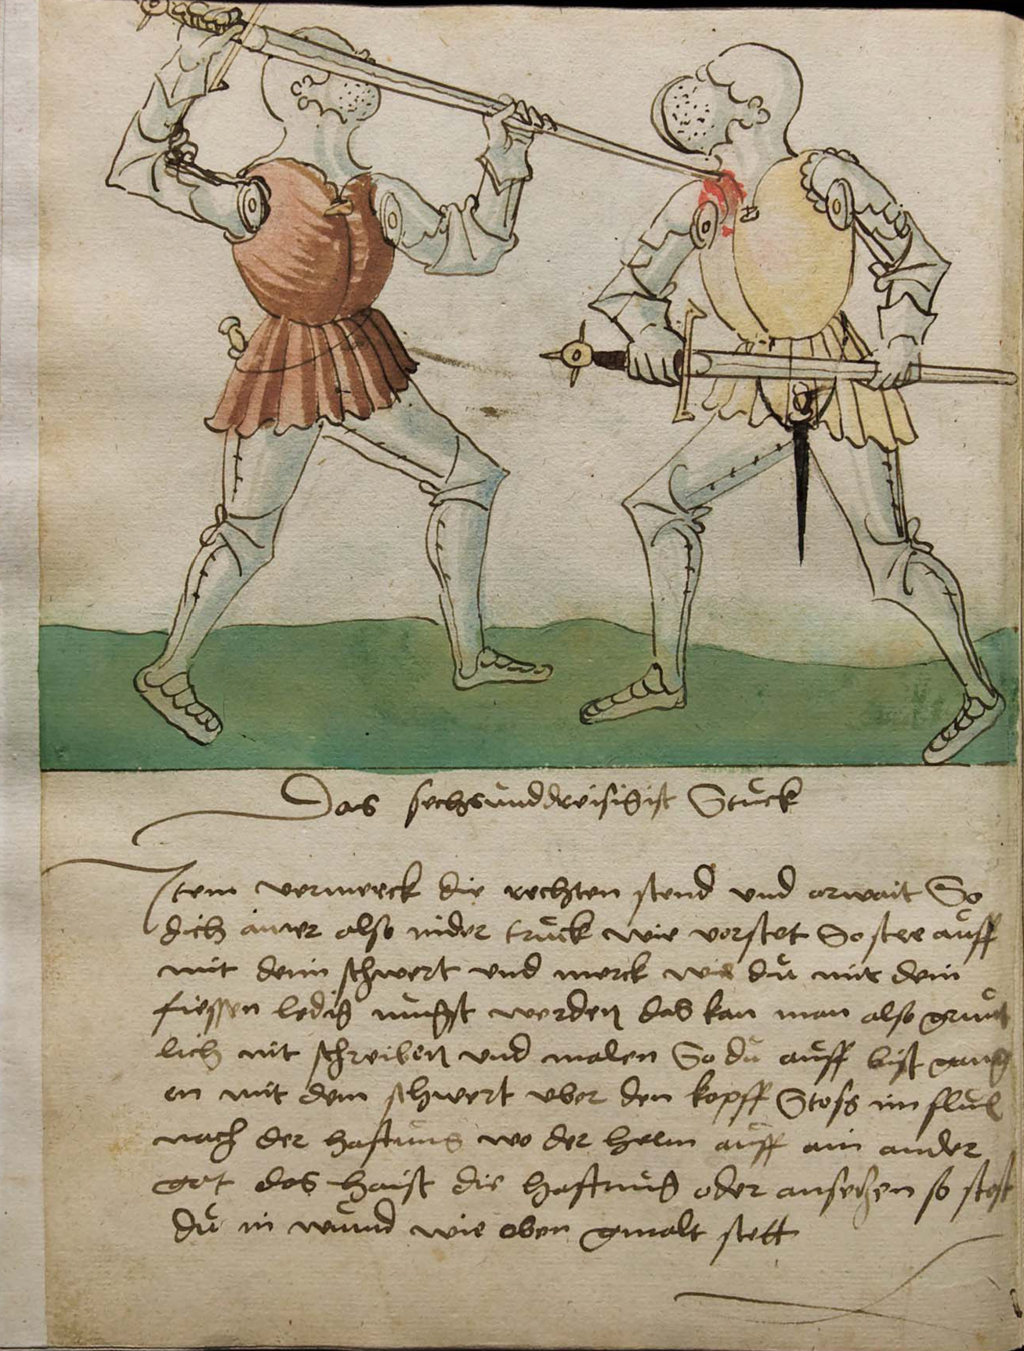 Das sechsunddreisigist Stuck
Item vermerck die rechten stend und arwait So
dich ainer also nider truck wie vorstet So stee auff
mit dein schwert und merck wie du mit dein
fiessen ledig mugst werden das kan man also grunt
lich nit schreiben und malen So du auff bist gang
en mit dem schwert uber den kopff Stoss im
nach der hafftung wo der helm auff ain ander
get das haist die hafftung oder ansetzen so
du in wund wie oben gmalt stett